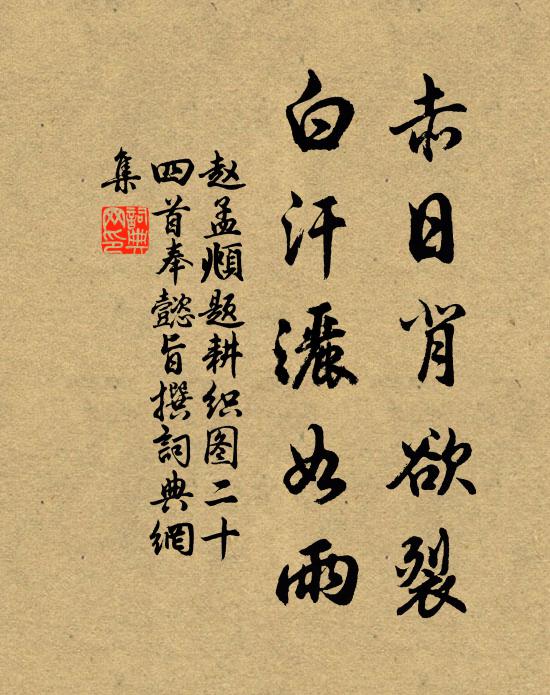 赤日背欲裂
白汗灑如雨
赵孟頫题耕织图二十
四首奉懿旨撰詞典網
集
詞典
网印